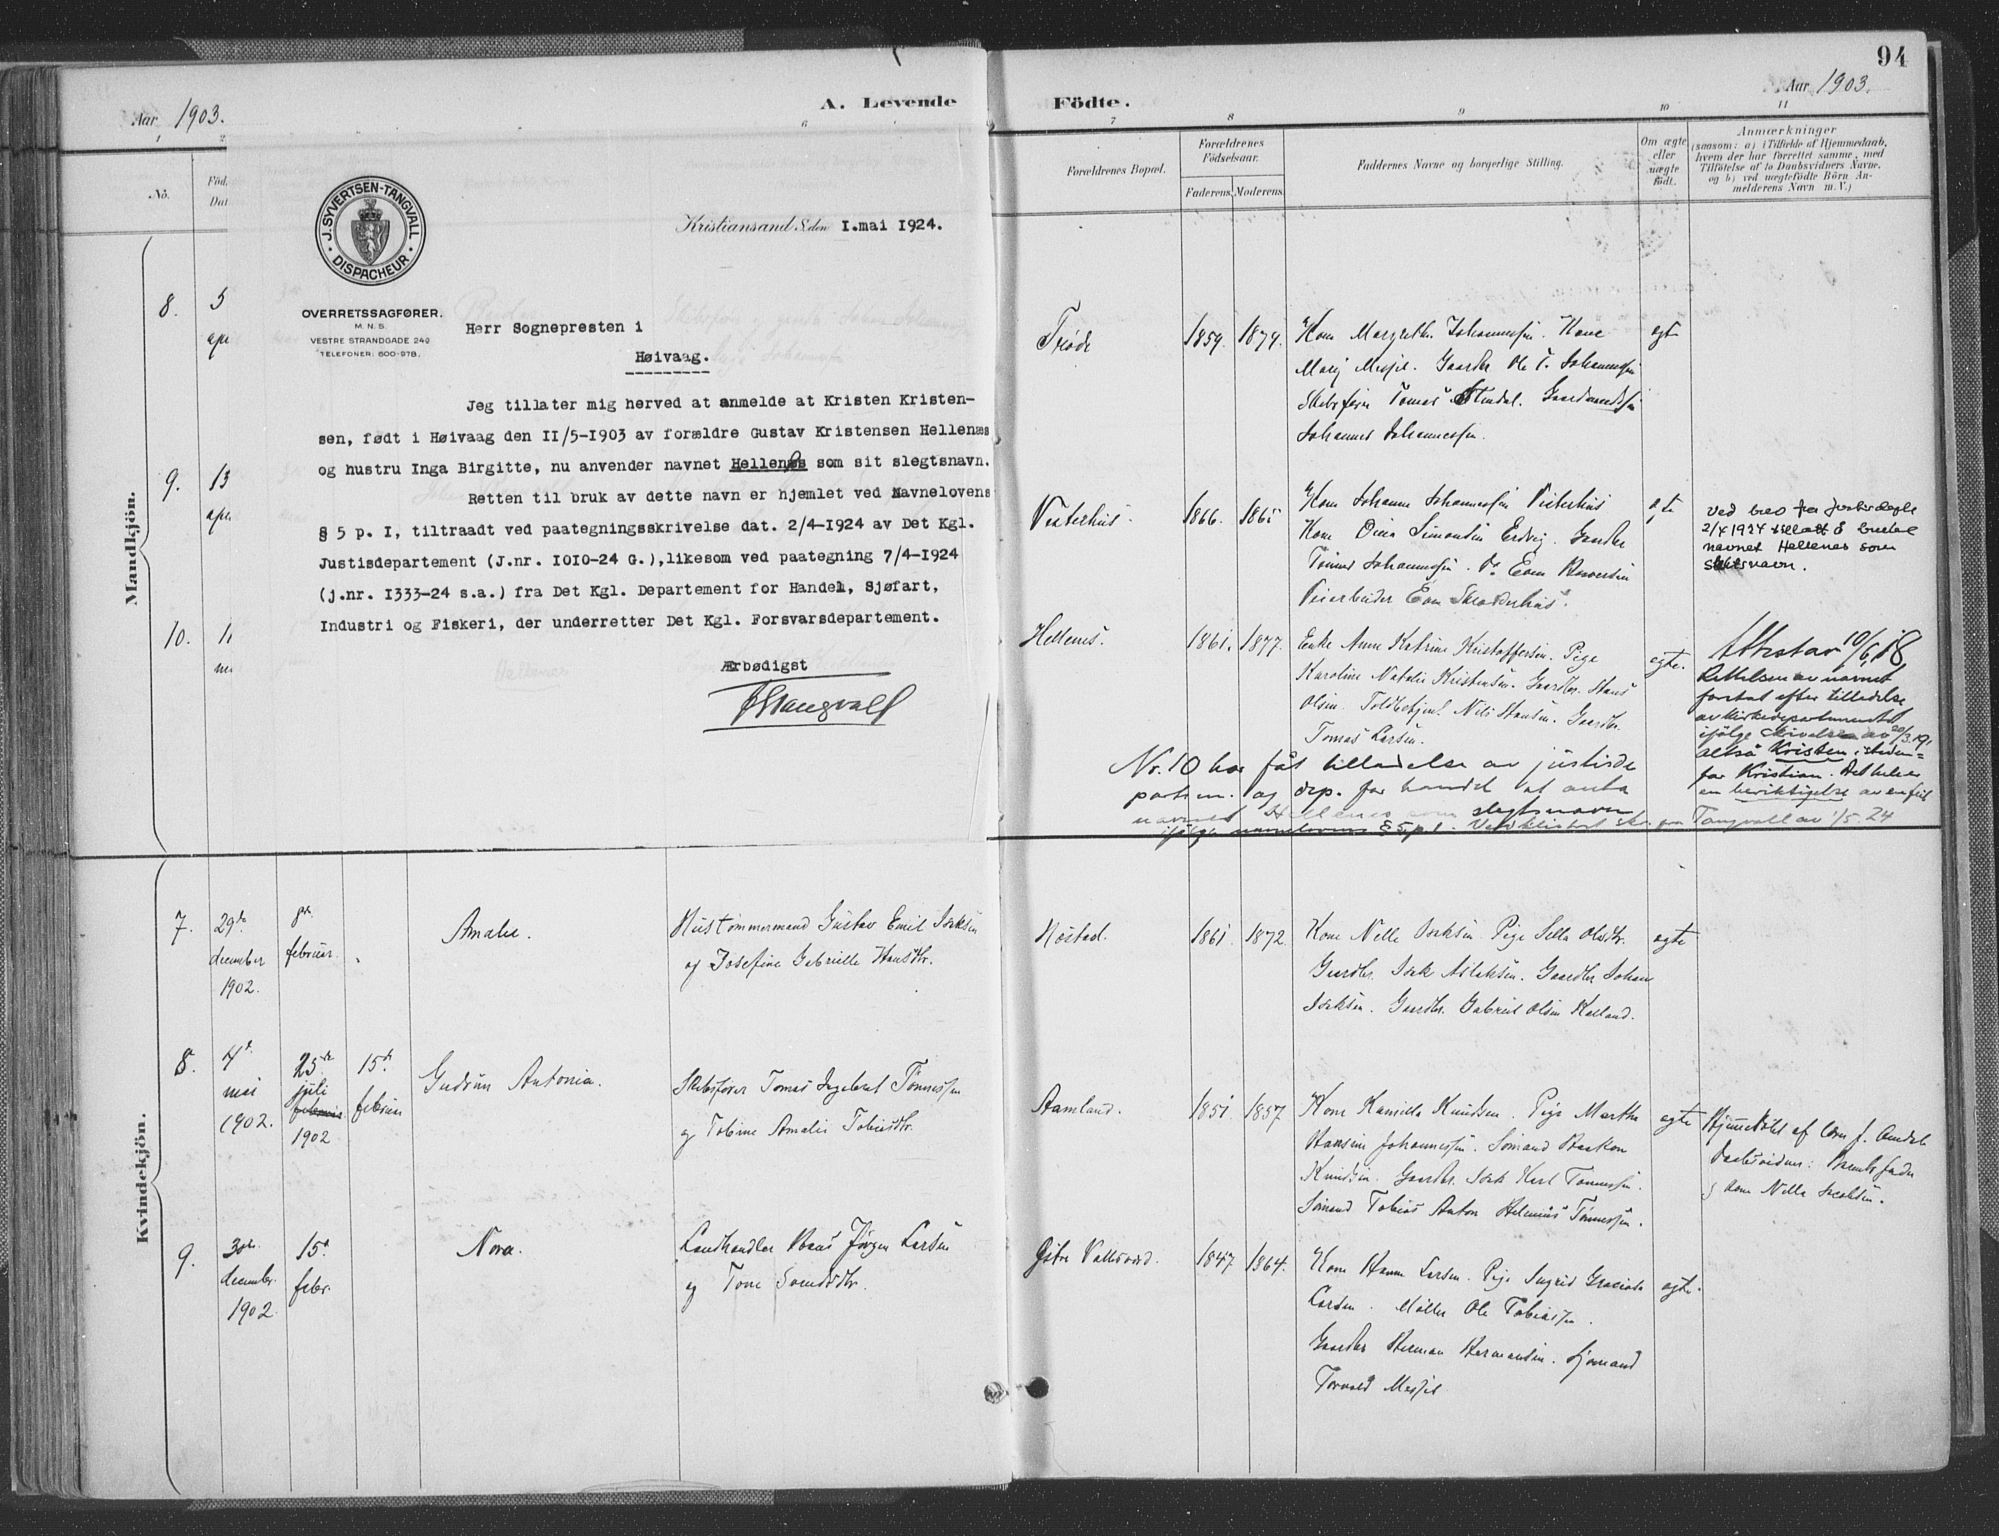 94
Aar 1903.
A. Levende
Födte.
Aar 1903.
1
2
6
7
8
9
10
11
No.
Föd.
Dat
Forældrenes Bopæl.
Forældrenes
Födselsaar.
Faderens. Moderens.
Faddernes Navne og borgerlige Stilling.
Om ægte
eller
uægte
födt.
Anmærkninger
(saasom: a) i Tilfælde af Hjemmedaab,
hvem der har forrettet samme, med
Tilföielse af to Daabsvidners Navne.
og b) ved uægtefödte Börn An-
melderens Navn m. V.)
J. SYVERTSEN-TANGVALL
DISPACHEUR
OVERRETSSAGFØRER.
M. N. S.
VESTRE STRANDGADE 24
TELEFONER: 600-978.
Kristiansand S. den I.mai I924.
Herr Sognepresten i
Høivaag.
Jeg tillater mig herved at anmelde at Kristen Kristen-
sen, født i Høivaag den II/5-I903 av forældre Gustav Kristensen Hellenæs
og hustru Inga Birgitte, nu anvender navnet Hellenes som sit slegtsnavn.
Retten til bruk av dette navn er hjemlet ved Navnelovens
§ 5 p. I, tiltraadt ved paategningsskrivelse dat. 2/4-I924 av Det Kgl.
Justisdepartement (J.nr. I0I0-24 G.),likesom ved paategning 7/4-I924
(j.nr. I333-24 s.a.) fra Det Kgl. Departement for Handel, Sjøfart,
Industri og Fiskeri, der underretter Det Kgl. Forsvarsdepartement.
Ærbødigst
Tangvall
Mandkjön.
8. 5
apr
1859. 1874.
Kone Margrethe Johannessen. Kone
Gaardbr Ole T. Johannessen
Skibsfører Tomas
Johannes Johannessen.
egt
9. 13
apr
1866. 1865
Kone Johanne Johannessen Vesterhus
Kone Simonsen Gaardbr
Tønnes Johannessen.
egte
ved brev fra justisdepte
2/4 1924 tillatt å bruke
navnet Hellenes som
slektsnavn.
10. 11
Hellenes. 1861. 1877.
Enke Anne Katrine Kristoffersen. Pige
Karoline Natalie Kristensen. Gaardbr. Hans
Olsen. Toldbetjent Nils Hansen. Gaardbr.
Tomas Larsen.
egte.
Attestav 10/6 18
Rettelsen av navnet
foretat efter tilladelse
av kirkedepartementet
ifølge skrivelse av 20/3.19,
altså Kristen, isteden-
for Kristian. Det hele er
en beriktigelse av en feil
Nr. 10 har fåt tilladelse av justisde
partem. og dep. for handel at anta
navnet Hellenes som slegtsnavn
ifølge navnelovens § 5 p 1. skr. fra Tangvall av 1/5. 24
Kvindekjön.
7. 29de
december
1902.
8de
februar.
Amalie.
Hustømmermand Gustav Emil Isaksen
og Josefine Gabrielle Hansdtr.
Høstad. 1861. 1872.
Kone Nelle Isaksen. Pige Sella Olsdtr.
Gaardbr. Isak Aslaksen. Gaardbr Johan
Isaksen. Gaardbr. Gabriel Olsen Kalland.
egte
8. 4de
mai
1902.
25de
juli
februar
1902
15de
februar
Gudrun Antonia.
Skibsfører Tomas Ingebret Tønnessen
og Tobine Amalie Tobiasdtr.
Aamland. 1851. 1857.
Kone Kamilla Knudsen. Pige Marthe
Hansine Johannessen. Sømand Haakon
Knudsen. Gaardbr. Isak Karl Tønnessen.
Sømand Tobias Anton Helenius Tønnessen.
egte
Hjemmedøbt af
Daabsvidner: Barnets fader
og kone Nella Jacobsen.
9. 30de
december
1902
15de
febr.
Nora.
Landhandler Hans Jørgen Larsen
og Tone Svendsdtr.
Østre Vallesværd. 1847 1864.
Kone Hanne Larsen. Pige Ingrid
Larsen. Møller Ole Tobiassen.
Gaardbr Herman Hermansen. Sjømand
Torvald
egte.